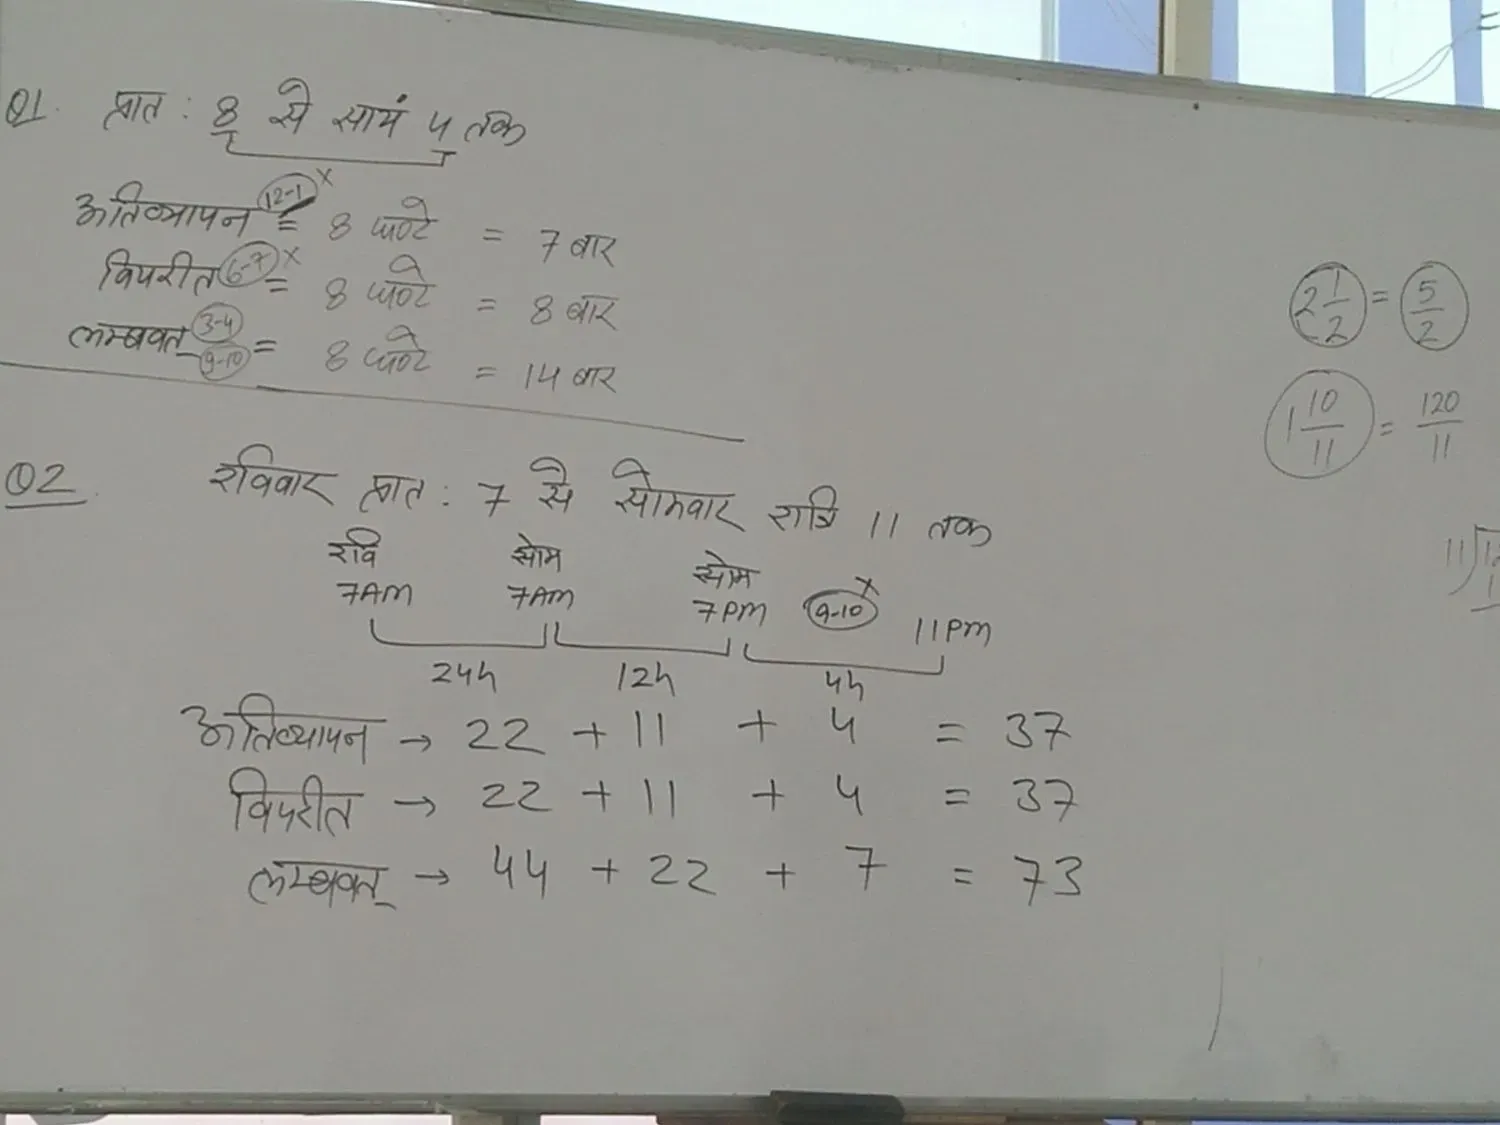 Q1. प्रात: 8 से सायं 4 तक
अतिव्यापन 12-1 x = 8 घण्टे = 7 बार
विपरीत 6-7 x = 8 घण्टे = 8 बार
लम्बवत् 3-4 9-10 = 8 घण्टे = 14 बार
2 1/2 = 5/2
1 10/11 = 120/11
Q2. रविवार प्रात: 7 से सोमवार रात्रि 11 तक
रवि सोम सोम
7AM 7AM 7PM 9-10 x 11PM
24h 12h 4h
अतिव्यापन → 22 + 11 + 4 = 37
विपरीत → 22 + 11 + 4 = 37
लम्बवत् → 44 + 22 + 7 = 73